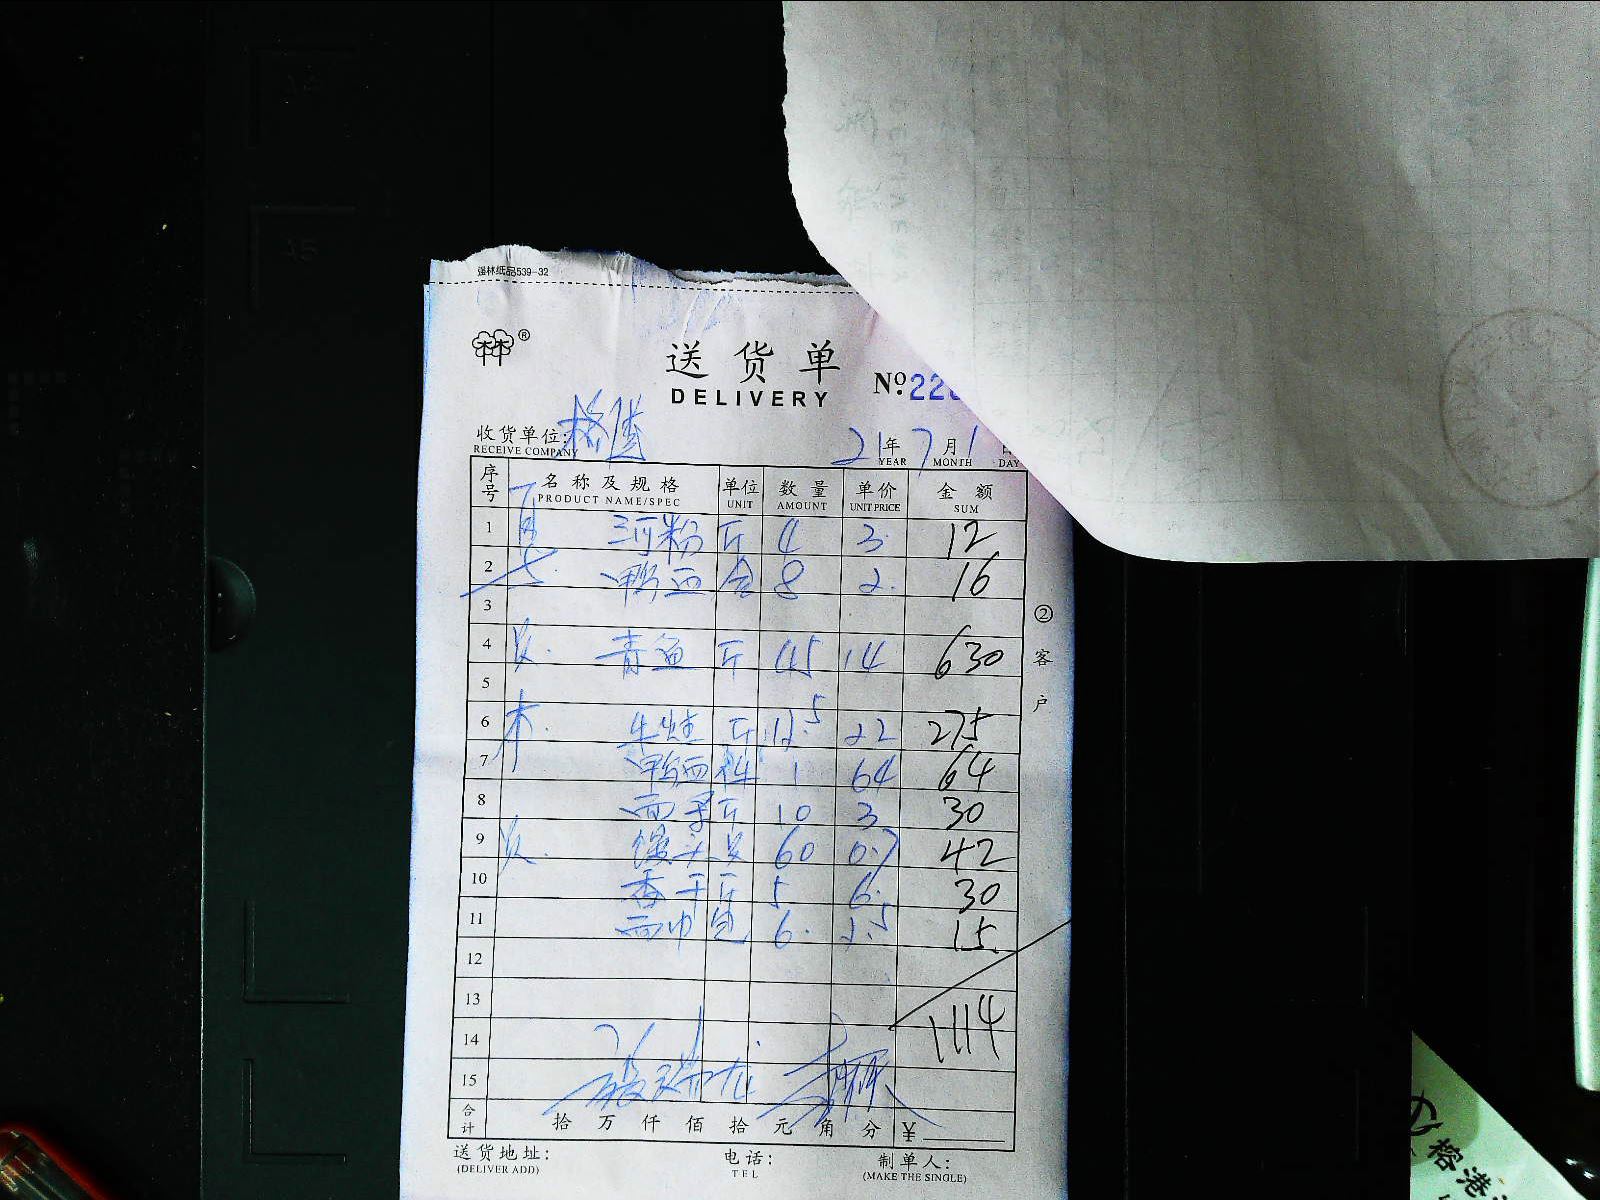 强林纸品539-32
林林®
送货单
DELIVERY
№.22
收货单位: 21年7月1
RECEIVE COMPANY YEAR MONTH DAY
序号 名称及规格 单位 数量 单价 金额
PRODUCT NAME/SPEC UNIT AMOUNT UNIT PRICE SUM
1 河粉 斤 4 3. 12
2 鸭血 合 8 2. 16
3
4 青鱼 斤 45 14 630
5
6 斤 12.5 22 275
7 鸭血 1 64 64
8 斤 10 3 30
9 馒头 只 60 0.7 42
10 香干 斤 5. 6. 30
11 面巾 包 6. 2.5 15.
12
13
14 1114
15
合计 拾 万 仟 佰 拾 元 角 分 ¥
②客户
送货地址: 电话: 制单人:
(DELIVER ADD) TEL (MAKE THE SINGLE)
榕港